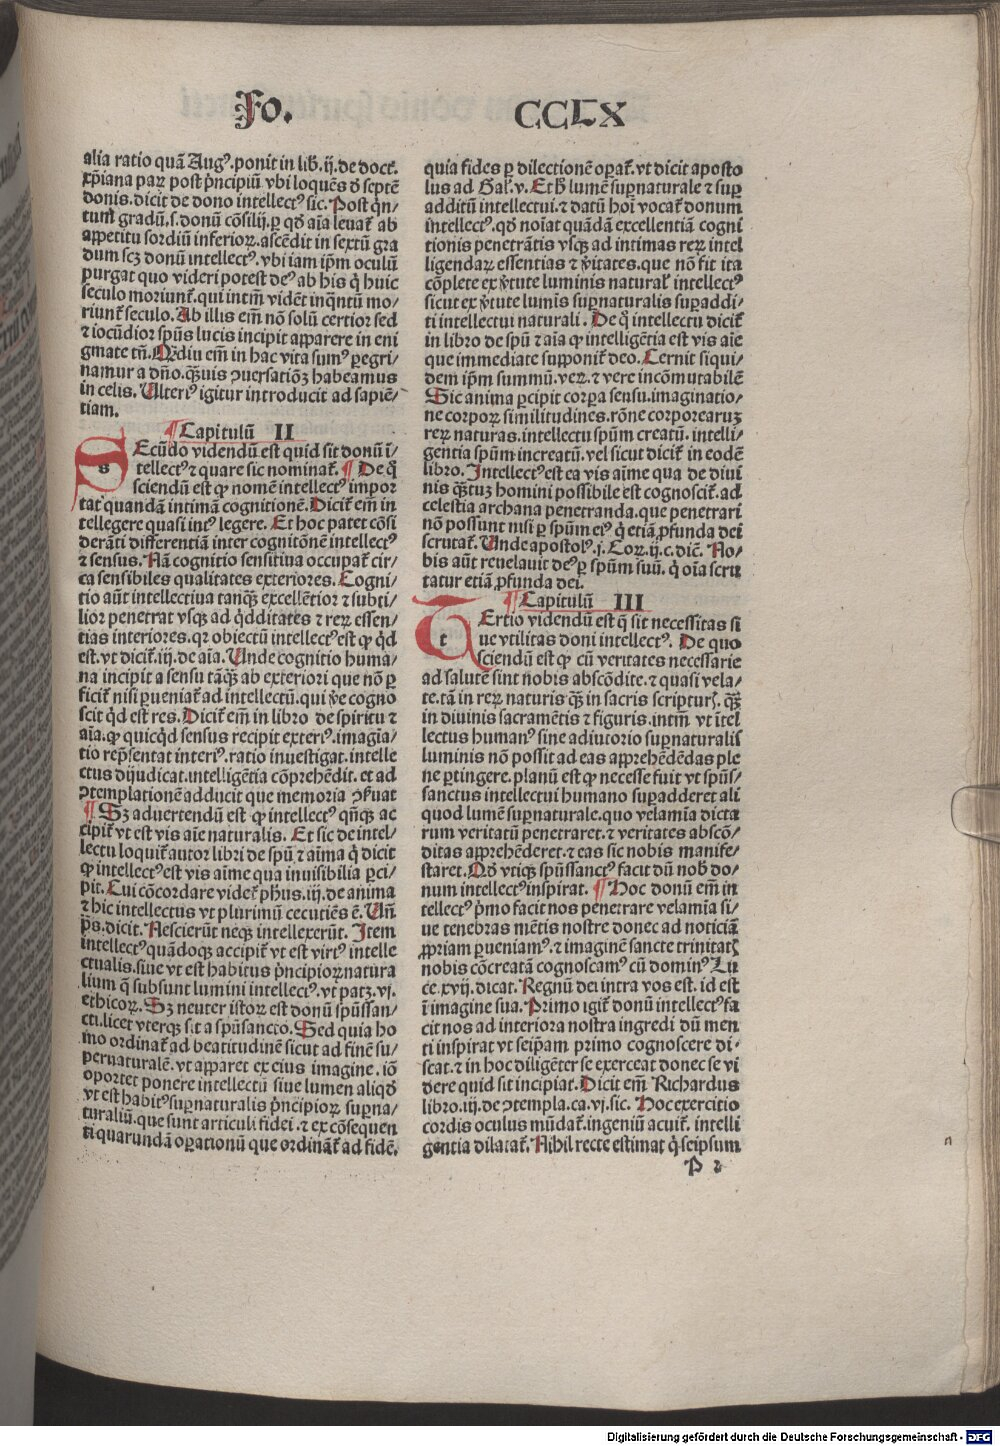 Fo. CCLX
alia ratio quã Augꝰ. ponit in lib̃. ij. de doct̃.
xp̃iana paꝝ post p̃ncipiũ vbi loquẽs d̕ septẽ
donis. dicit de dono intellectꝰ sic. Post q̃n/
tum gradũ. s. donũ cõsilij. ꝑ qd̕ aĩa leuat̃ ab
appetitu sordiũ inferioꝝ. ascẽdit in sextũ gra
dum scꝫ donũ intellectꝰ. vbi iam ip̃m oculũ
purgat quo videri potest deꝰ ab his q̃ huic
seculo moriunt̃. qui intm̃ vidẽt inq̃ntũ mo/
riunt̃ seculo. Ab illis em̃ nõ solũ certior sed
⁊ iocũdior spũs lucis incipit apparere in eni
gmate tñ. Qm̃diu em̃ in hac vita sumꝰ pegri/
namur a dño. q̃uis ꝯuersatiõꝫ habeamus
in celis. Ulteriꝰ igitur introducit ad sapiẽ/
tiam.
¶ Capitulũ II
SEcũdo videndũ est quid sit donũ ĩ/
tellectꝰ ⁊ quare sic nominat̃. ¶ De q̃
sciendũ est ꝙ nomẽ intellectꝰ impor
tat quandã intimã cognitionẽ. Dicit̃ em̃ in
tellegere quasi intꝰ legere. Et hoc patet cõsi
derãti differentiã inter cognitõnẽ intellectꝰ
⁊ sensus. Nã cognitio sensitiua occupat̃ cir/
ca sensibiles qualitates exteriores. Cogni/
tio aũt intellectiua tanq̃ꝫ excellẽtior ⁊ subti/
lior penetrat vsqꝫ ad q̃dditates ⁊ reꝝ essen/
tias interiores. qꝛ obiectũ intellectꝰ est ꝙ q̃d
est. vt dicit̃. iij. de aĩa. Unde cognitio huma/
na incipit a sensu tãq̃ꝫ ab exteriori que nõ ꝑ
ficit̃ nisi ꝑueniat̃ ad intellectũ. qui ṽe cogno
scit q̃d est res. Dicit̃ em̃ in libro de spiritu ⁊
aĩa. ꝙ quicq̃d sensus recipit exteriꝰ. imagĩa/
tio rep̃sentat interiꝰ. ratio inuestigat. intelle
ctus dijudicat. intelligẽtia cõprehẽdit. et ad
ꝯtemplationẽ adducit que memoria ꝯseruat
¶ Sꝫ aduertendũ est ꝙ intellectꝰ qñqꝫ ac
cipit̃ vt est vis aĩe naturalis. Et sic de intel/
lectu loquit̃ autor libri de spũ ⁊ aĩma q̃ dicit
ꝙ intellectꝰ est vis aĩme qua inuisibilia ꝑci/
pit. Cui cõcordare videt̃ ph̃us. iij. de anima
⁊ hic intellectus vt plurimũ cecutiẽs ẽ. Uñ
p̃s. dicit. Nescierũt neqꝫ intellexerũt. Item
intellectꝰ quãdoqꝫ accipit̃ vt est virtꝰ intelle
ctualis. siue vt est habitus p̃ncipioꝝ natura
lium q̃ subsunt lumini intellectꝰ. vt patꝫ. vj.
ethicoꝝ. Sꝫ neuter istoꝝ est donũ spũssan/
cti. licet vterqꝫ sit a spũsancto. Sed quia ho
mo ordinat̃ ad beatitudinẽ sicut ad finẽ su/
pernaturalẽ. vt apparet ex eius imagine. iõ
oportet ponere intellectũ siue lumen aliqd̕
vt est habitꝰ suꝑnaturalis p̃ncipioꝝ supna/
turaliũ. que sunt articuli fidei. ⁊ ex cõsequen
ti quarundã oꝑationũ que ordinãt̃ ad fidẽ.
quia fides ꝑ dilectionẽ oꝑat̃. vt dicit aposto
lus ad Gal̃. v. Et h̕ lumẽ suꝑnaturale ⁊ suꝑ
additũ intellectui. ⁊ datũ hoĩ vocat̃ donum
intellectꝰ. qd̕ noĩat quãdã excellentiã cogni
tionis penetrãtis vsqꝫ ad intimas reꝝ intel
ligendaꝝ essentias ⁊ ṽitates. que nõ fit ita
cõplete ex ṽtute luminis natural̃ intellectꝰ
sicut ex ṽtute lumĩs suꝑnaturalis suꝑaddi/
ti intellectui naturali. De q̃ intellectu dicit̃
in libro de spũ ⁊ aĩa ꝙ intelligẽtia est vis aĩe
que immediate supponit̃ deo. Cernit siqui/
dem ip̃m summũ. veꝝ. ⁊ vere incõmutabilẽ
Sic anima ꝑcipit corꝑa sensu. imaginatio/
ne corpoꝝ similitudines. rõne corporearuꝫ
reꝝ naturas. intellectu spũm creatũ. intelli/
gentia spũm increatũ. vel sicut dicit̃ in eodẽ
libro. Intellectꝰ est ea vis aĩme qua de diui
nis q̃ꝫtuꝫ homini possibile est cognoscit̃. ad
celestia archana penetranda. que penetrari
nõ possunt nisi ꝑ spũm eiꝰ q̃ etiã ꝓfunda dei
scrutat̃. Unde apostolꝰ. j. Coꝝ. ij. c. diẽ. No/
bis aũt reuelauit deꝰ ꝑ spũm suũ. q̃ oĩa scru
tatur etiã ꝓfunda dei.
¶ Capitulũ III
TErtio videndũ est q̃ sit necessitas si
ue vtilitas doni intellectꝰ. De quo
sciendũ est ꝙ cũ veritates necessarie
ad salutẽ sint nobis abscõdite. ⁊ quasi vela/
te. tã in reꝝ naturis q̃ꝫ in sacris scripturꝭ. q̃ꝫ
in diuinis sacramẽtis ⁊ figuris. intm̃ vt ĩtel
lectus humanꝰ sine adiutorio suꝑnaturalis
luminis nõ possit ad eas apprehẽdẽdas ple
ne ꝑtingere. planũ est ꝙ necesse fuit vt spũs/
sanctus intellectui humano suꝑadderet ali
quod lumẽ suꝑnaturale. quo velamĩa dicta
rum veritatũ penetraret. ⁊ veritates abscõ/
ditas apprehẽderet. ⁊ eas sic nobis manife/
staret. Qd̕ vtiqꝫ spũssanctꝰ facit dũ nob̕ do/
num intellectꝰ inspirat. ¶ Hoc donũ em̃ in
tellectꝰ p̃mo facit nos penetrare velamĩa si/
ue tenebras mẽtis nostre donec ad noticiã
ꝓpriam ꝑueniamꝰ. ⁊ imaginẽ sancte trinitatꝭ
nobis cõcreatã cognoscamꝰ cũ dominꝰ Lu
ce. xvij. dicat. Regnũ dei intra vos est. id est
ĩ imagine sua. Primo igit̃ donũ intellectꝰ fa
cit nos ad interiora nostra ingredi dũ men
ti inspirat vt seip̃am primo cognoscere di/
scat. ⁊ in hoc diligẽter se exerceat donec se vi
dere quid sit incipiat. Dicit em̃ Richardus
libro. iij. de ꝯtempla. ca. vj. sic. Hoc exercitio
cordis oculus mũdat̃. ingeniũ acuit̃. intelli
gentia dilatat̃. Nihil recte estimat q̃ seipsum
P 2
Digitalisierung gefördert durch die Deutsche Forschungsgemeinschaft - DFG